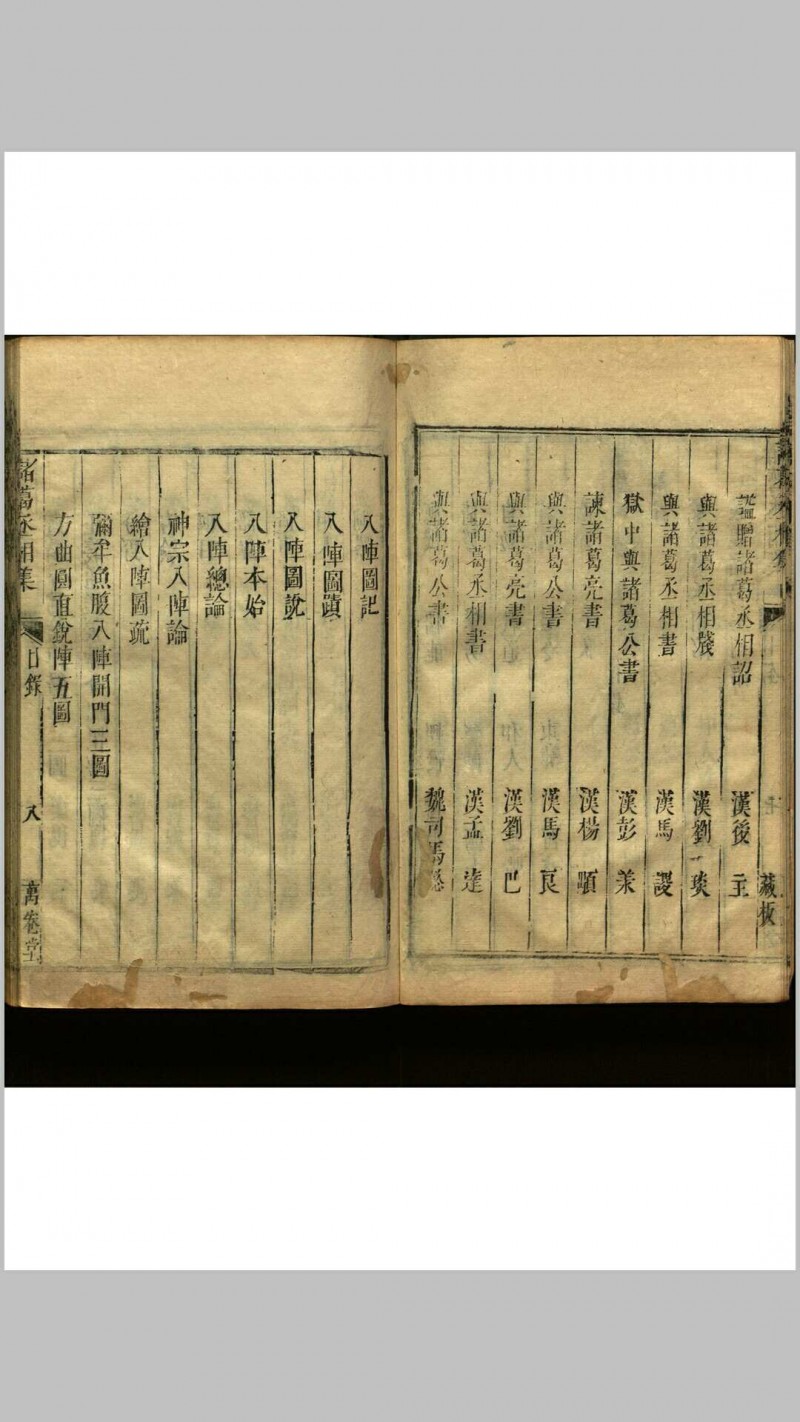 諡贈諸葛丞相詔 漢後 主
與諸葛丞相牋 漢劉 琰
與諸葛丞相書 漢馬 謖
獄中與諸葛公書 漢彭 羕
諫諸葛亮書 漢楊 顒
與諸葛公書 漢馬 良
與諸葛亮書 漢劉 巴
與諸葛丞相書 漢孟 達
與諸葛公書 魏司馬懿
藏板
八陣圖記
八陣圖蹟
八陣圖說
八陣本始
八陣總論
神宗八陣論
繪八陣圖疏
彌牟魚腹八陣開門三圖
方曲圓直銳陣五圖
諸葛丞相集 目錄 八 萬卷堂